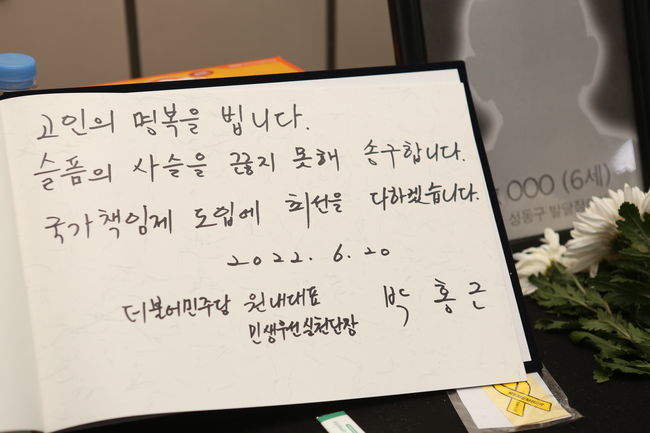 고인의 명복을 빕니다.
슬픔의 사슬을 끊지 못해 송구합니다.
국가책임제 도입에 최선을 다하겠습니다.
2022. 6. 20
더불어민주당 원내대표
민생우선실천단장
박홍근
OOO (6세)
성동구 발달장
REMEMBER